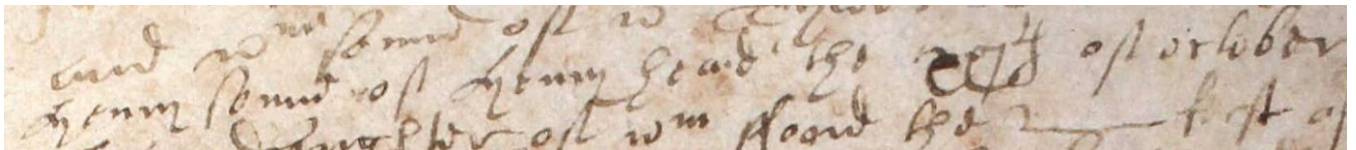 and wm sonne of w
Henry sonne of Henry heade the xxjth of october
daughter of wm ffoord the first of